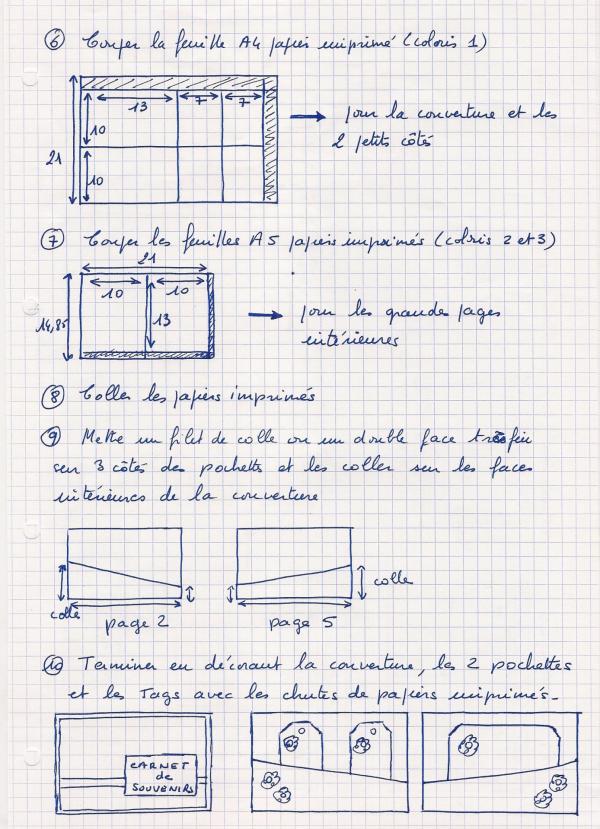 6 Couper la feuille A4 papier imprimé (coloris 1)
13 7 7
10
21
10
pour la couverture et les
2 petits côtés
7 Couper les feuilles A5 papiers imprimés (coloris 2 et 3)
21
10 10
14,85
13
pour les grandes pages
intérieures
8 Coller les papiers imprimés
9 Mettre un filet de colle ou un double face très fin
sur 3 côtés des pochettes et les coller sur les faces
intérieures de la couverture
colle
colle
page 2 page 5
10 Terminer en décorant la couverture, les 2 pochettes
et les Tags avec les chutes de papiers imprimés.
CARNET
de
SOUVENIRS